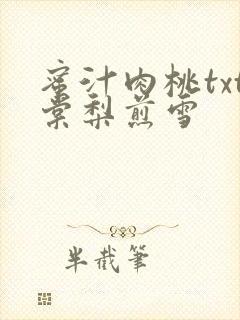 蜜汁肉桃txt
棠梨煎雪
半截筆